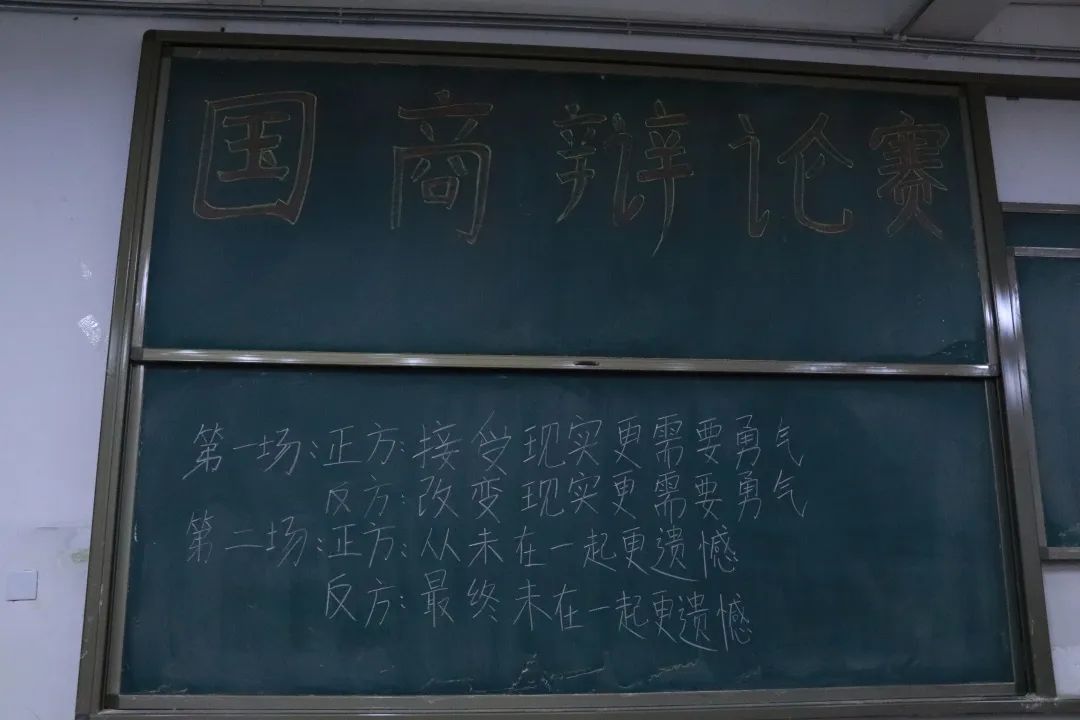 国商辩论赛
第一场:正方:接受现实更需要勇气
反方:改变现实更需要勇气
第二场:正方:从未在一起更遗憾
反方:最终未在一起更遗憾